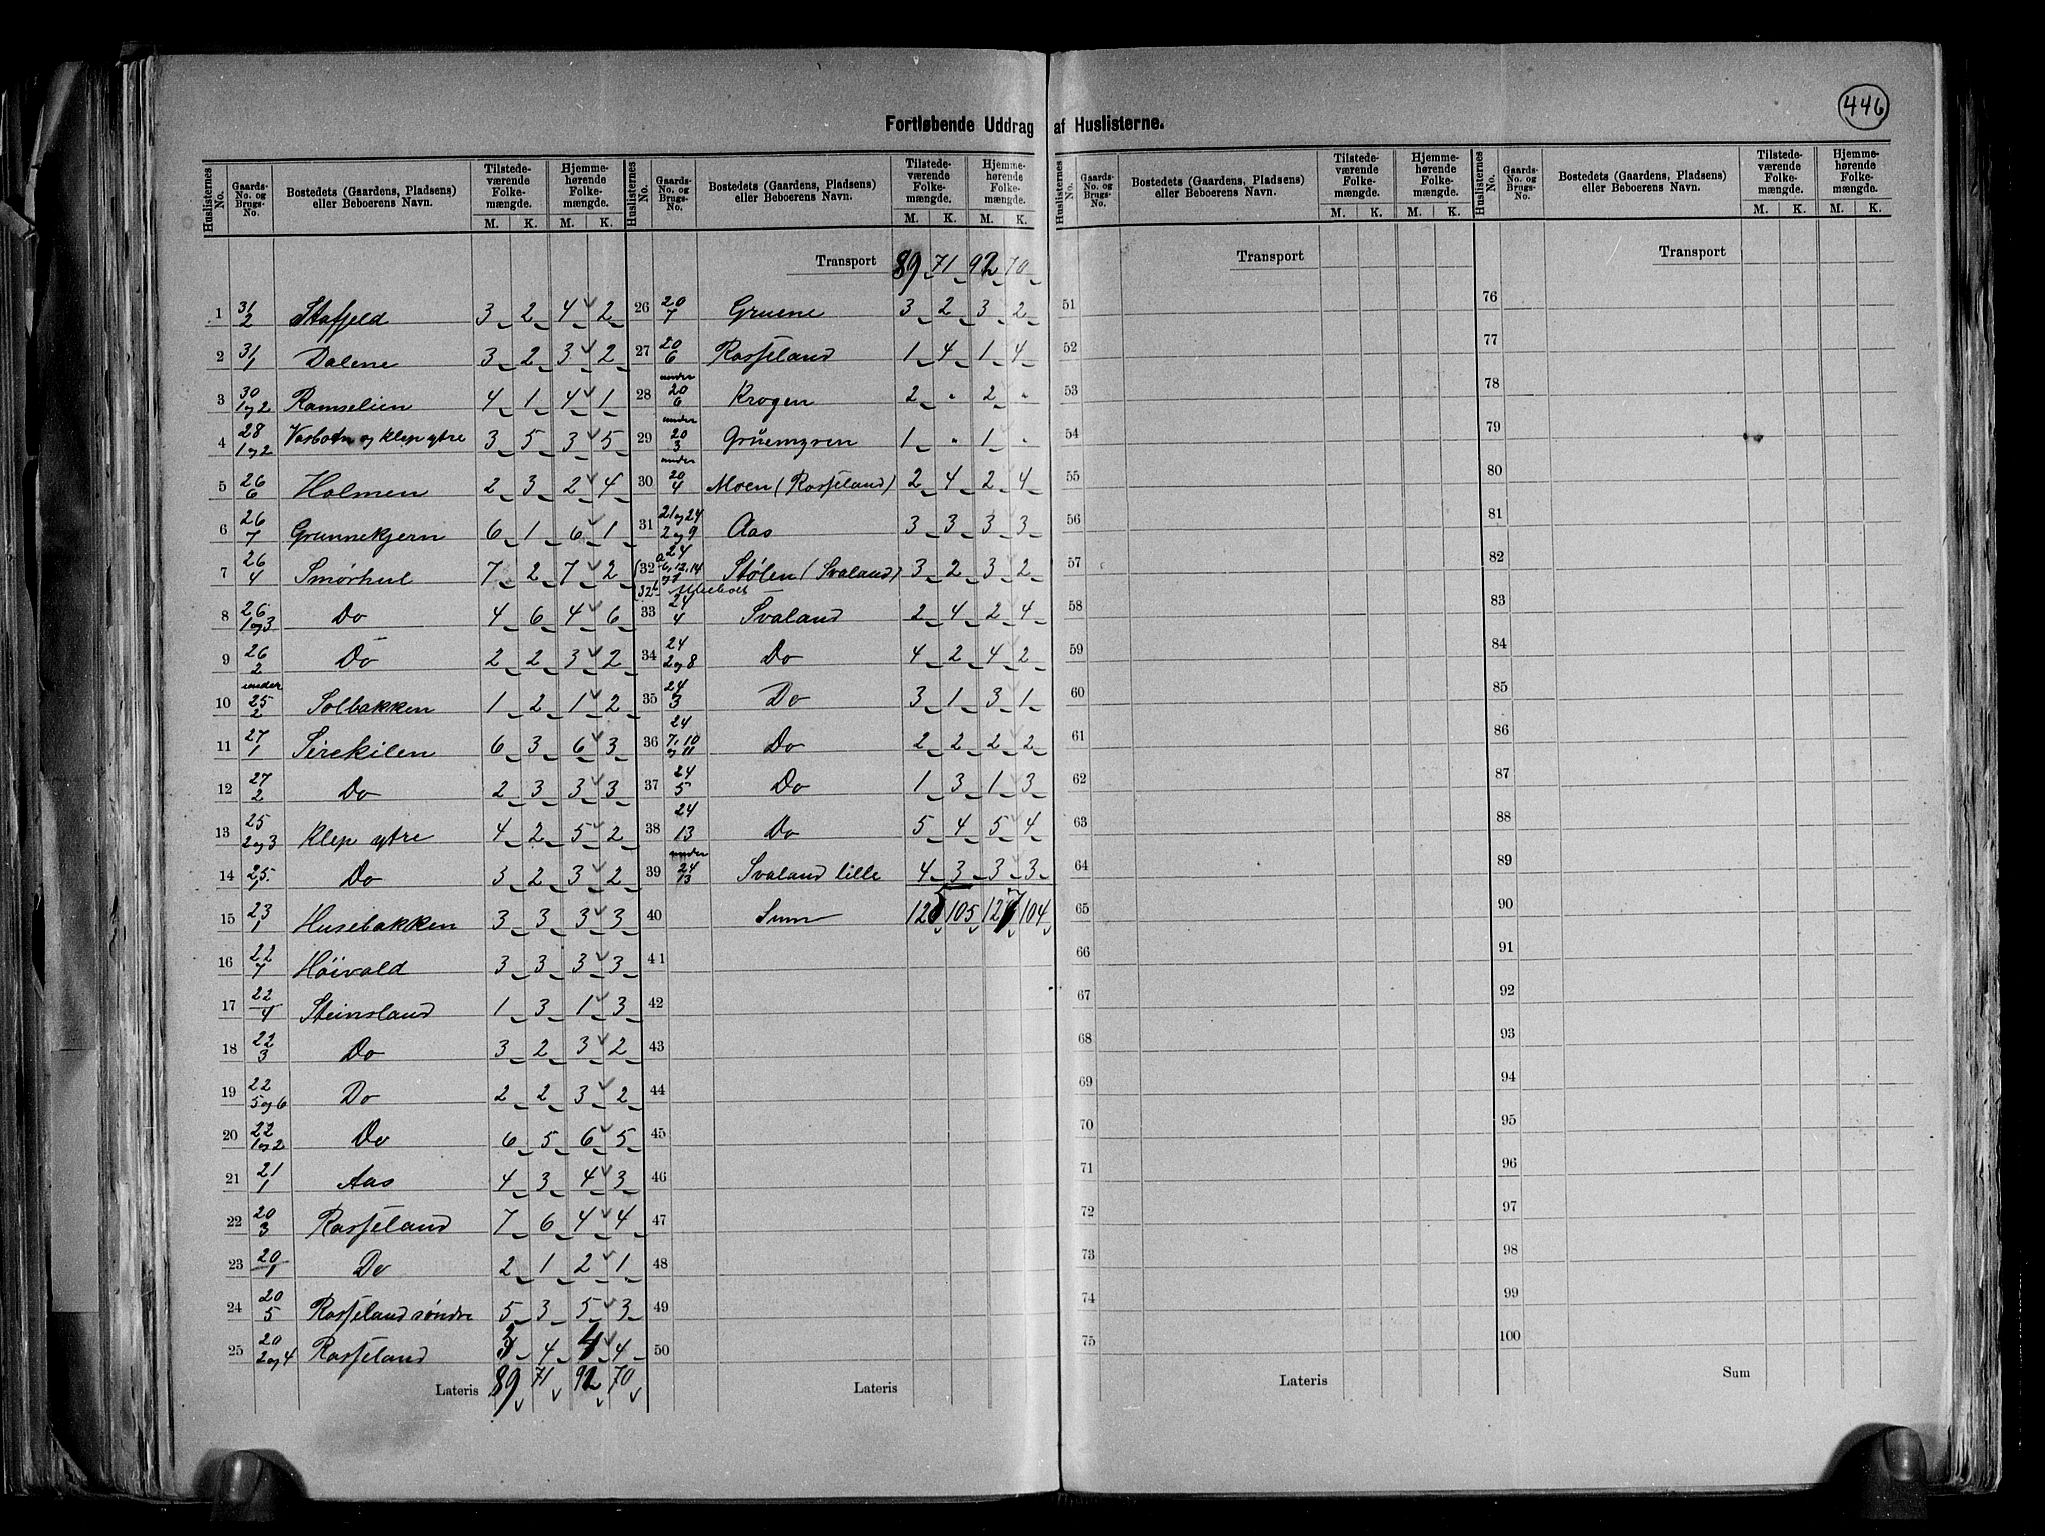 446
Fortløbende Uddrag af Huslisterne.
Huslisternes No. | Gaards-No. og Brugs-No. | Bostedets (Gaardens, Pladsen) eller Beboerens Navn. | Tilstedeværende Folkemængde. M. K. | Hjemmehørende Folkemængde. M. K.
1 31/2 Stafjeld 3 2 4 2
2 31/1 Dalene 3 2 3 2
3 30/1og2 Ramselien 4 1 4 1
4 28/1og2 Vasbotn og Klep ytre 3 5 3 5
5 26/6 Holmen 2 3 2 4
6 26/7 Grunnekjern 6 1 6 1
7 26/4 Smørhul 7 2 7 2
8 26/1og3 Do 4 6 4 6
9 26/2 Do 2 2 3 2
10 under 25/2 Solbakken 1 2 1 2
11 27/1 Sirekilen 6 3 6 3
12 27/2 Do 2 3 3 3
13 25/2og3 Klep ytre 4 2 5 2
14 25/1 Do 3 2 3 2
15 23/1 Husebakken 3 3 3 3
16 22/7 Høivold 3 3 3 3
17 22/4 Steinsland 1 3 1 3
18 22/3 Do 3 2 3 2
19 22/5og6 Do 2 2 3 2
20 22/1og2 Do 6 5 6 5
21 21/1 Aas 4 3 4 3
22 20/3 Rosseland 7 6 4 4
23 20/1 Do 2 1 2 1
24 20/5 Rosseland søndre 5 3 5 3
25 20/2og4 Rosseland 3 4 4 4
Lateris 89 71 92 70
Huslisternes No. | Gaards-No. og Brugs-No. | Bostedets (Gaarden, Pladsen) eller Beboerens Navn. | Tilstedeværende Folkemængde. M. K. | Hjemmehørende Folkemængde. M. K.
Transport 89 71 92 70
26 20/7 Gruene 3 2 3 2
27 20/6 Rosseland 1 4 1 4
28 under 20/6 Krogen 2 " 2 "
29 under 20/3 Gruemyren 1 " 1 "
30 under 20/4 Moen (Rosseland) 2 4 2 4
31 21og24/2og9 Aas 3 3 3 3
32 24/6,12,14 og 1 Stølen (Svaland) 3 2 3 2
33 24/4 Svaland 2 4 2 4
34 24/2og8 Do 4 2 4 2
35 24/3 Do 3 1 3 1
36 24/7,10 og 11 Do 2 2 2 2
37 24/5 Do 1 3 1 3
38 24/13 Do 5 4 5 4
39 under 24/13 Svaland lille 4 3 3 3
40 Sum 125 105 127 104
41
42
43
44
45
46
47
48
49
50
Lateris
Huslisternes No. | Gaards-No. og Brugs-No. | Bostedets (Gaardens, Pladsen) eller Beboerens Navn. | Tilstedeværende Folkemængde. M. K. | Hjemmehørende Folkemængde. M. K.
Transport
51
52
53
54
55
56
57
58
59
60
61
62
63
64
65
66
67
68
69
70
71
72
73
74
75
Lateris
Huslisternes No. | Gaards-No. og Brugs-No. | Bostedets (Gaardens, Pladsen) eller Beboerens Navn. | Tilstedeværende Folkemængde. M. K. | Hjemmehørende Folkemængde. M. K.
Transport
76
77
78
79
80
81
82
83
84
85
86
87
88
89
90
91
92
93
94
95
96
97
98
99
100
Sum